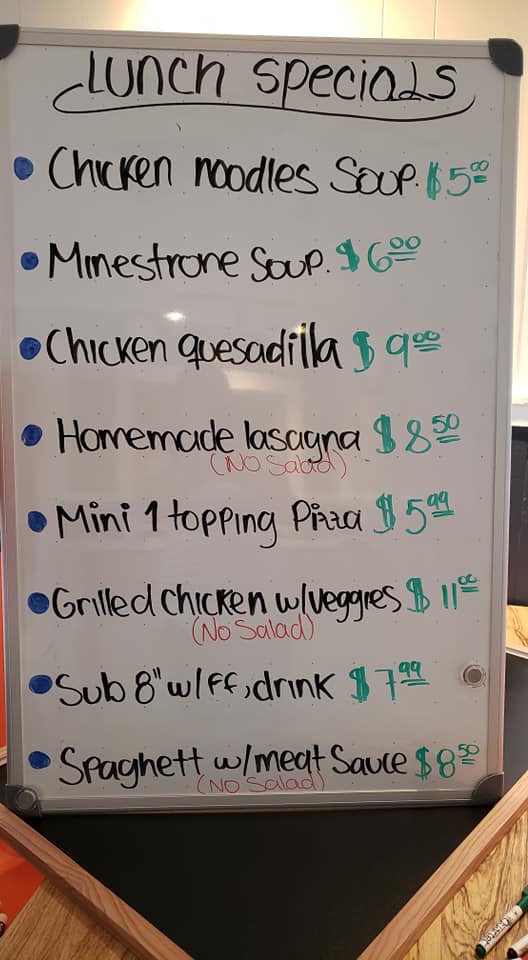 Lunch Specials
Chicken noodles Soup. $5.00
Minestrone Soup. $6.00
Chicken quesadilla $9.00
Homemade lasagna $8.50
(No Salad)
Mini 1 topping Pizza $5.99
Grilled chicken w/veggies $11.00
(No Salad)
Sub 8" w/ff, drink $7.99
Spaghett w/meat Sauce $8.50
(No Salad)